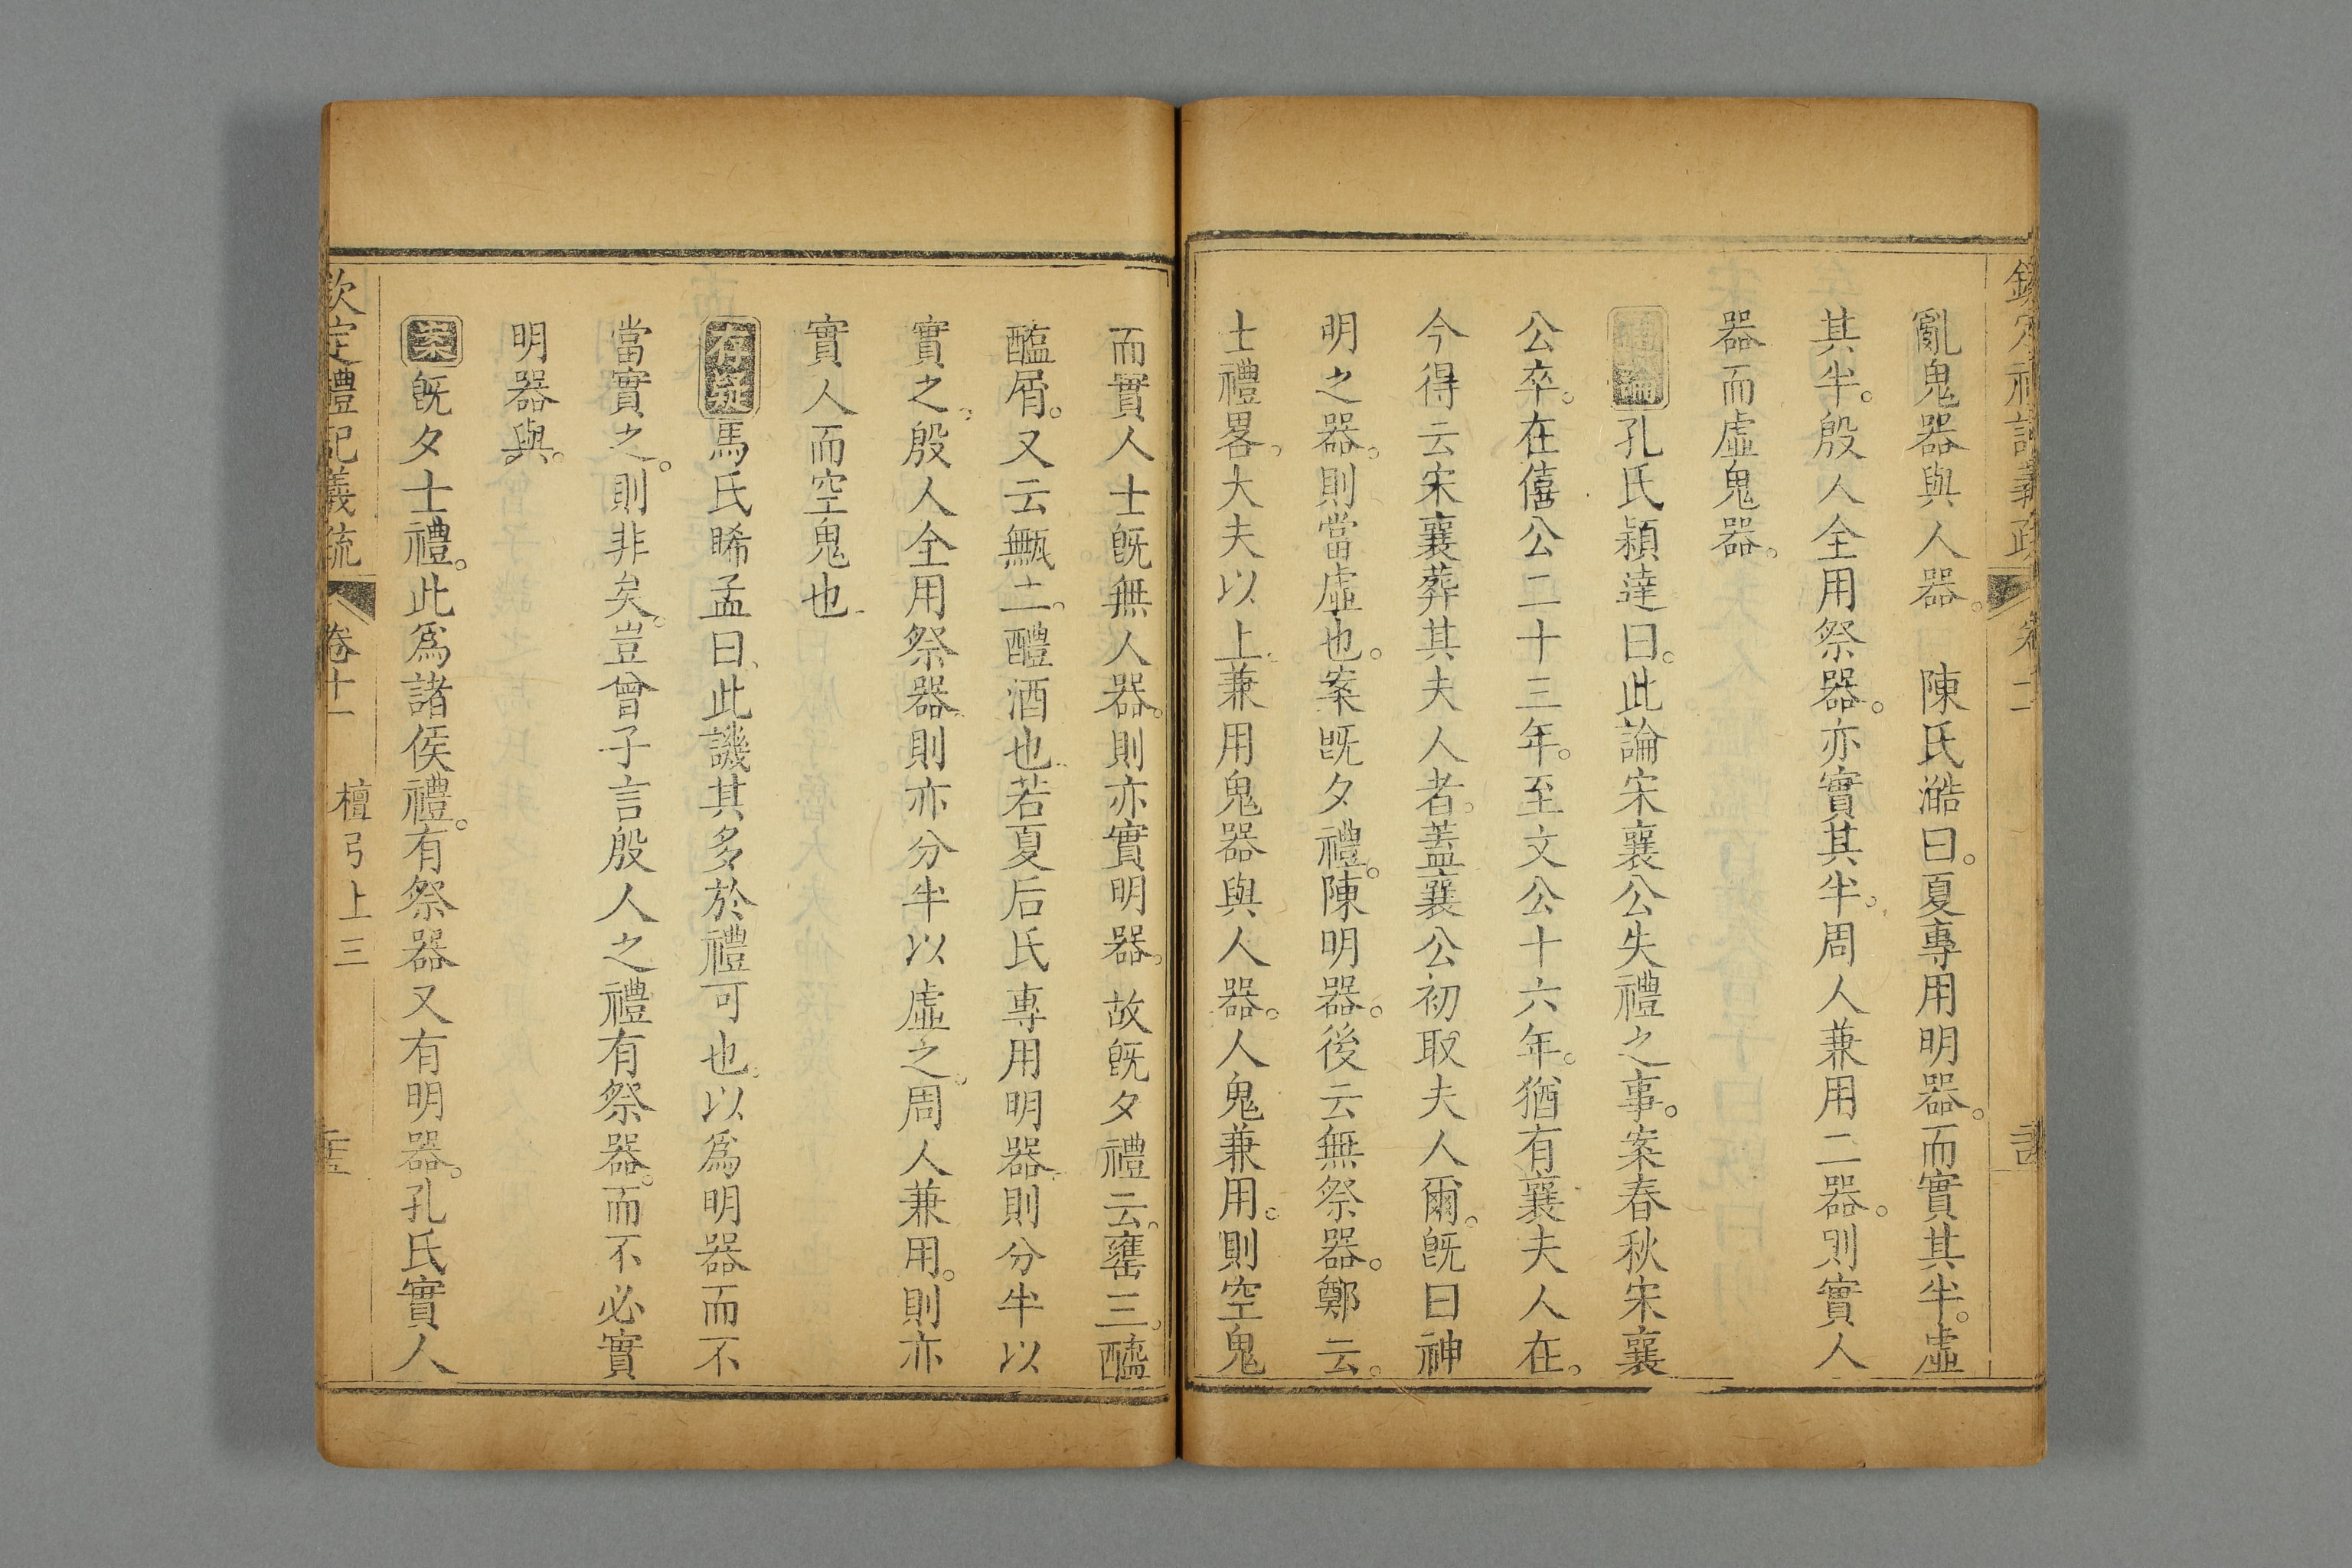 亂鬼器與人器。　陳氏澔曰。夏專用明器。而實其半。虛
其半。殷人全用祭器。亦實其半。周人兼用二器。則實人
器而虛鬼器。
通論孔氏穎達曰。此論宋襄公失禮之事。案春秋宋襄
公卒。在僖公二十三年。至文公十六年。猶有襄夫人在。
今得云宋襄葬其夫人者。蓋襄公初取夫人爾。旣曰神
明之器。則當虛也。案旣夕禮。陳明器。後云無祭器。鄭云。
士禮畧。大夫以上。兼用鬼器與人器。人鬼兼用。則空鬼
而實人士旣無人器。則亦實明器。故旣夕禮云。罋三。醯
醢屑。又云甒二。醴酒也。若夏后氏專用明器。則分半以
實之。殷人全用祭器。則亦分半以虛之。周人兼用。則亦
實人而空鬼也
存疑馬氏睎孟曰、此譏其多於禮可也。以爲明器而不
當實之。則非矣。豈曾子言殷人之禮有祭器。而不必實
明器與。
案旣夕士禮。此爲諸侯禮。有祭器又有明器。孔氏實人
欽定禮記義疏　卷十一　檀弓上三